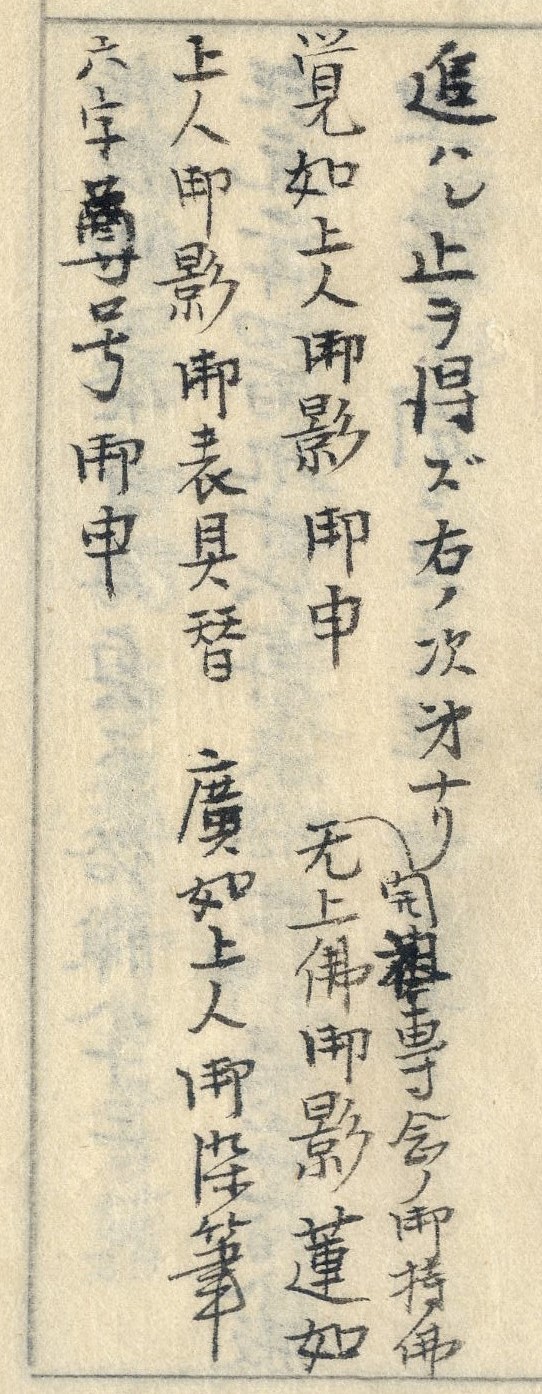 進ハレ止ヲ得ズ右ノ次第ナリ
専念ノ御持佛
覚如上人御影御申 无上佛御影蓮如
上人御影御表具替 廣如上人御染筆
六字尊号御申